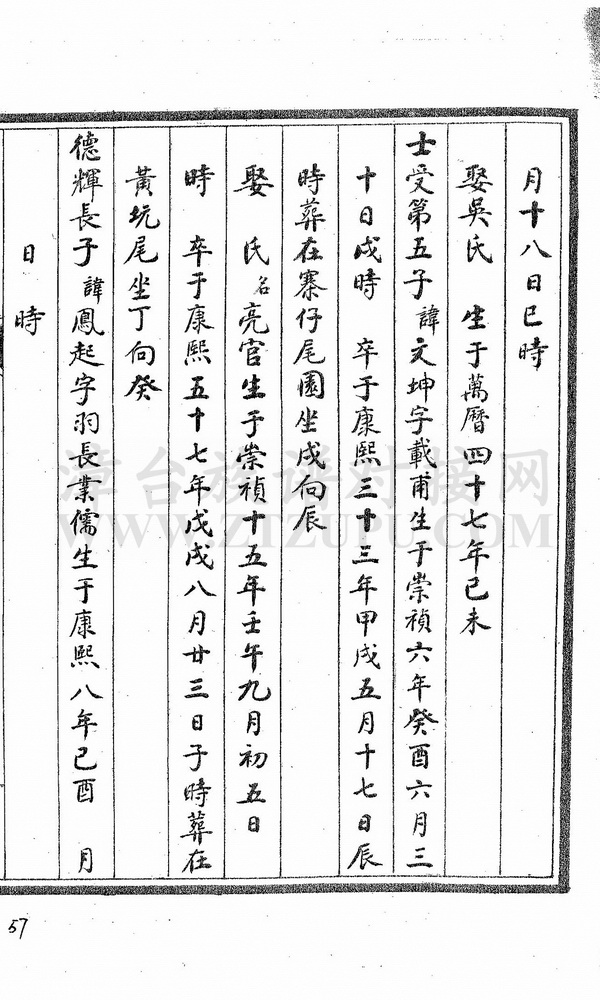 月十八日巳時
娶吳氏 生于萬曆四十七年己未
士受第五子 諱文坤字載甫生于崇禎六年癸酉六月三
十日戌時 卒于康熙三十三年甲戌五月十七日辰
時葬在寨仔尾園坐戌向辰
娶 氏 名亮官生于崇禎十五年壬午九月初五日
時 卒于康熙五十七年戊戌八月廿三日子時葬在
黃坑尾坐丁向癸
德輝長子 諱鳳起字羽長業儒生于康熙八年己酉 月
日 時
漳台族谱对接网
WWW.ZTZUPU.COM
57